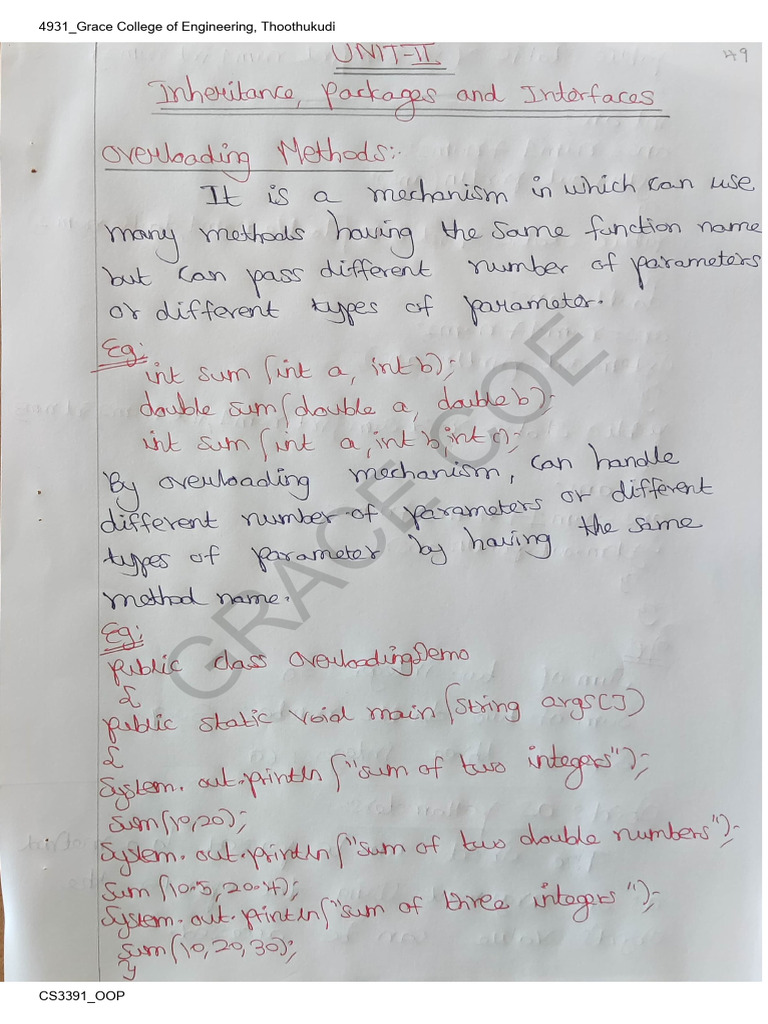 4931_Grace College of Engineering, Thoothukudi
49
UNIT-II
Inheritance, Packages and Interfaces
Overloading Methods:-
It is a mechanism in which can use
many methods having the same function name
but can pass different number of parameters
or different types of parameter.
Eg:
int sum (int a, int b);
double sum(double a, double b);
int sum (int a, int b, int c);
By overloading mechanism, can handle
different number of parameters or different
types of parameter by having the same
method name.
Eg:
public class OverloadingDemo
{
public static void main (String args[])
{
System.out.println ("sum of two integers");
sum(10,20);
System.out.println ("sum of two double numbers");
Sum (10.5, 20.4);
System.out.println ("sum of three integers");
sum(10,20,30);
}
GRACE COE
CS3391_OOP